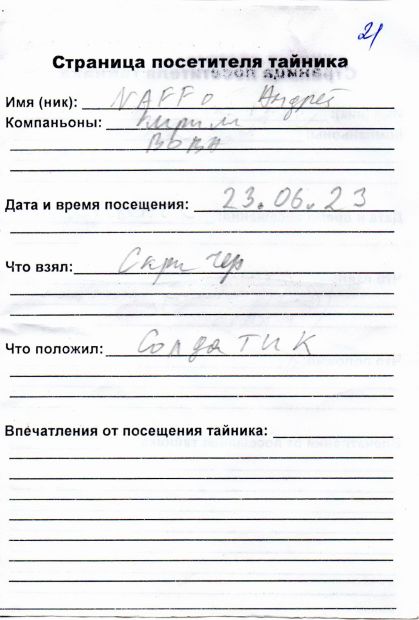 21
Страница посетителя тайника
Имя (ник): NAFFO Андрей
Компаньоны: Кирилл
ВОВА
Дата и время посещения: 23.06.23
Что взял: Скричер
Что положил: Солдатик
Впечатления от посещения тайника: